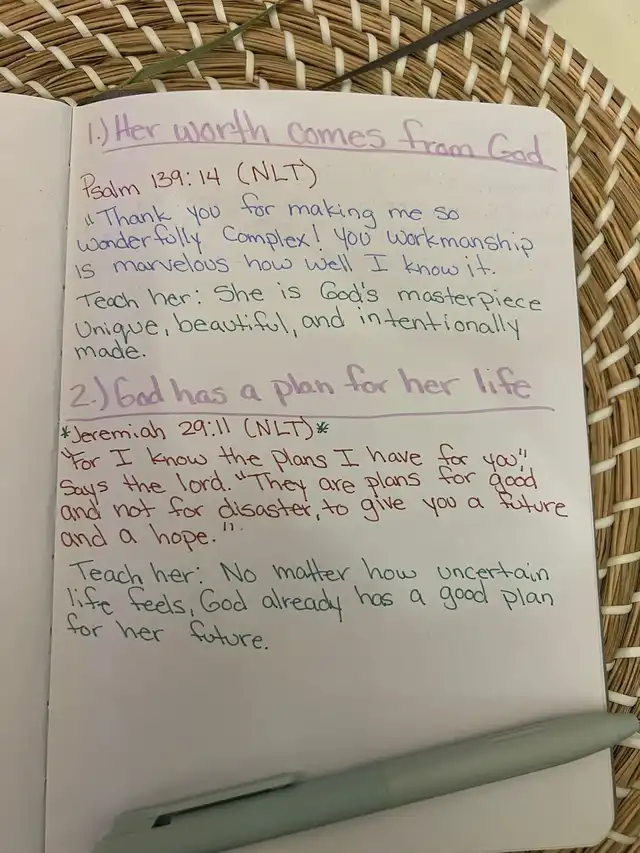 1.) Her worth comes from God
Psalm 139:14 (NLT)
"Thank you for making me so
wonderfully complex! You workmanship
is marvelous how well I know it.
Teach her: She is God's masterpiece
Unique, beautiful, and intentionally
made.
2.) God has a plan for her life
*Jeremiah 29:11 (NLT)*
"For I know the plans I have for you"
says the lord. "They are plans for good
and not for disaster, to give you a future
and a hope."
Teach her: No matter how uncertain
life feels, God already has a good plan
for her future.